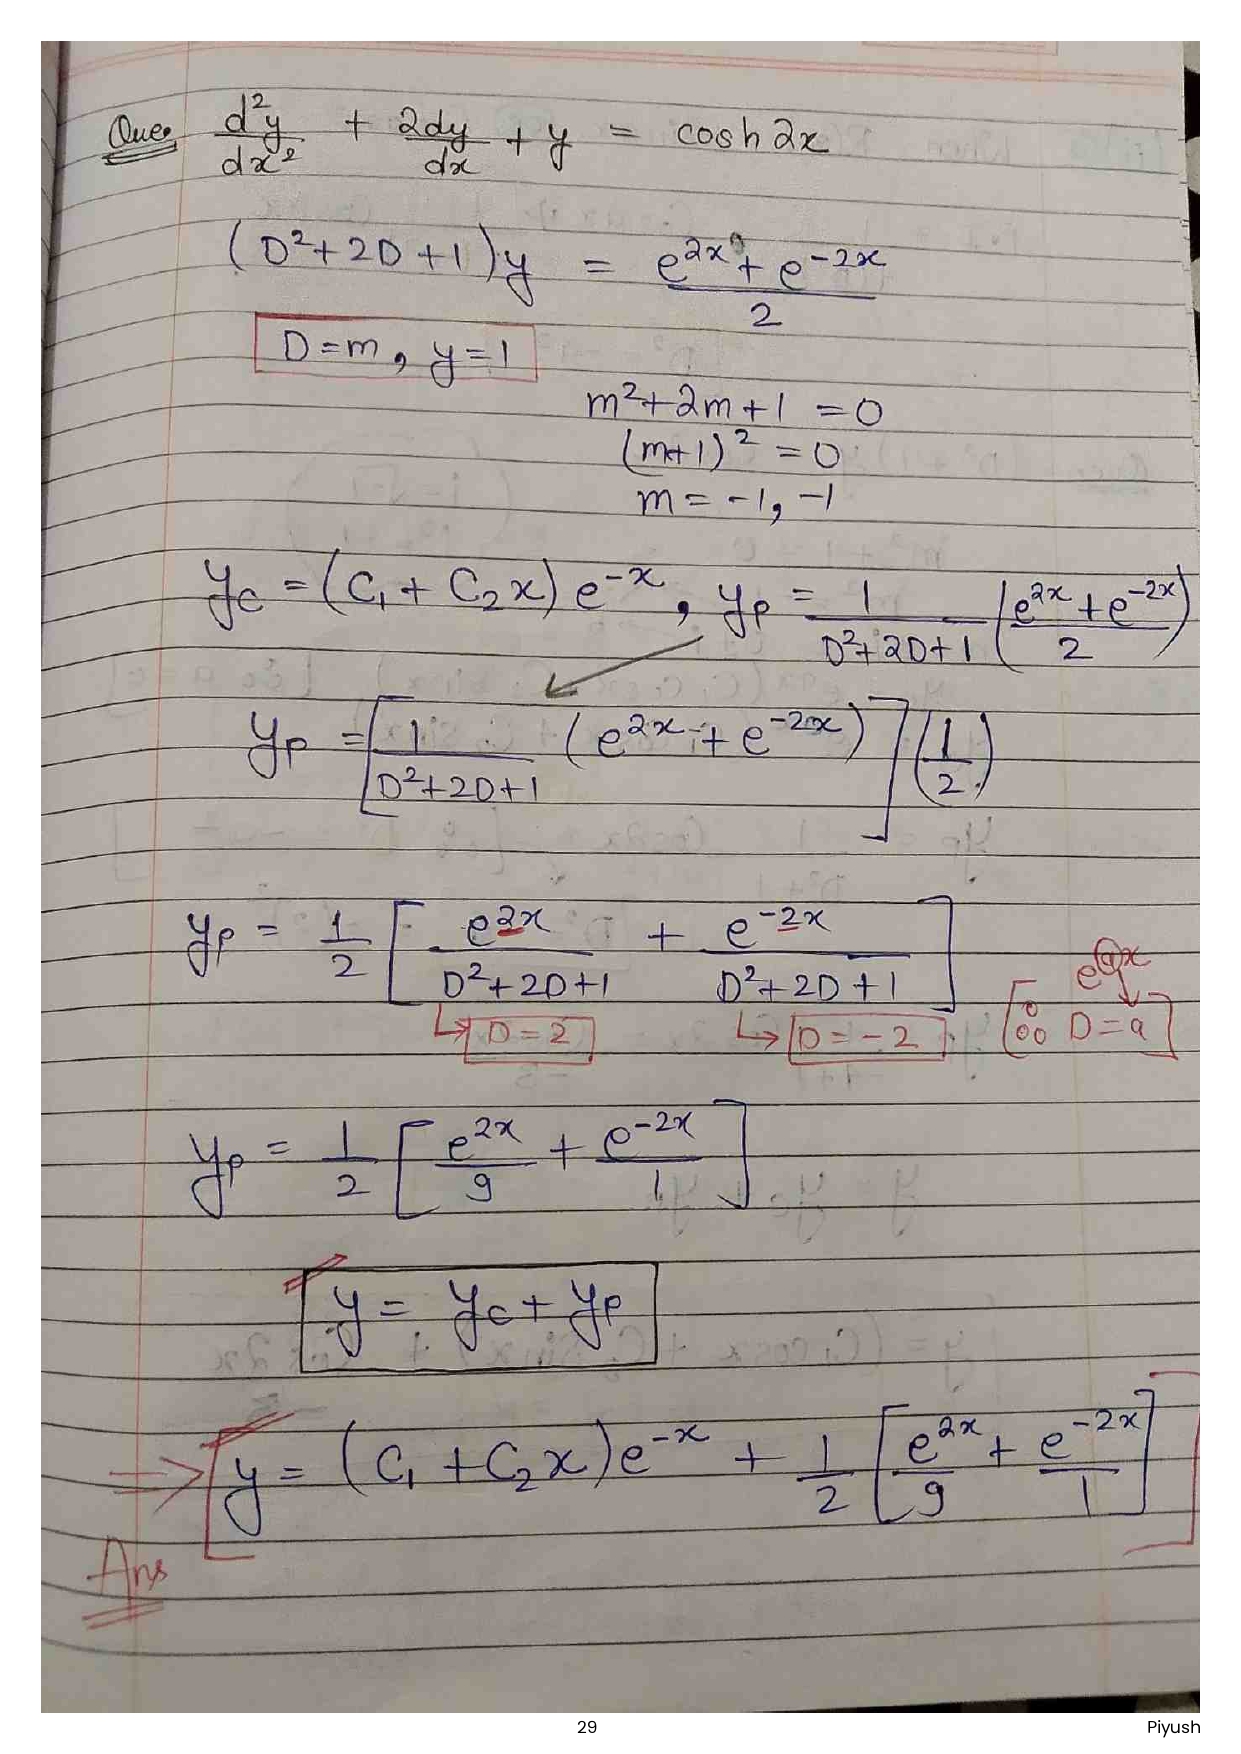 Que. d²y/dx² + 2dy/dx + y = cosh2x
(D²+2D+1)y = (e^2x + e^-2x)/2
D=m, y=1
m²+2m+1 = 0
(m+1)² = 0
m = -1, -1
yc = (C₁ + C₂x) e^-x, yp = 1/(D²+2D+1) ((e^2x + e^-2x)/2)
yp = [1/(D²+2D+1) (e^2x + e^-2x)] (1/2)
yp = 1/2 [e^2x/(D²+2D+1) + e^-2x/(D²+2D+1)]
D=2 D=-2 [e^ax ∴ D=a]
yp = 1/2 [e^2x/9 + e^-2x/1]
y = yc + yp
⇒ y = (C₁ + C₂x)e^-x + 1/2 [e^2x/9 + e^-2x/1]
Ans
29 Piyush